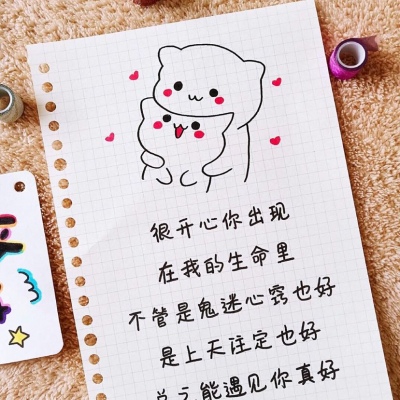 很开心你出现
在我的生命里
不管是鬼迷心窍也好
是上天注定也好
总之能遇见你真好